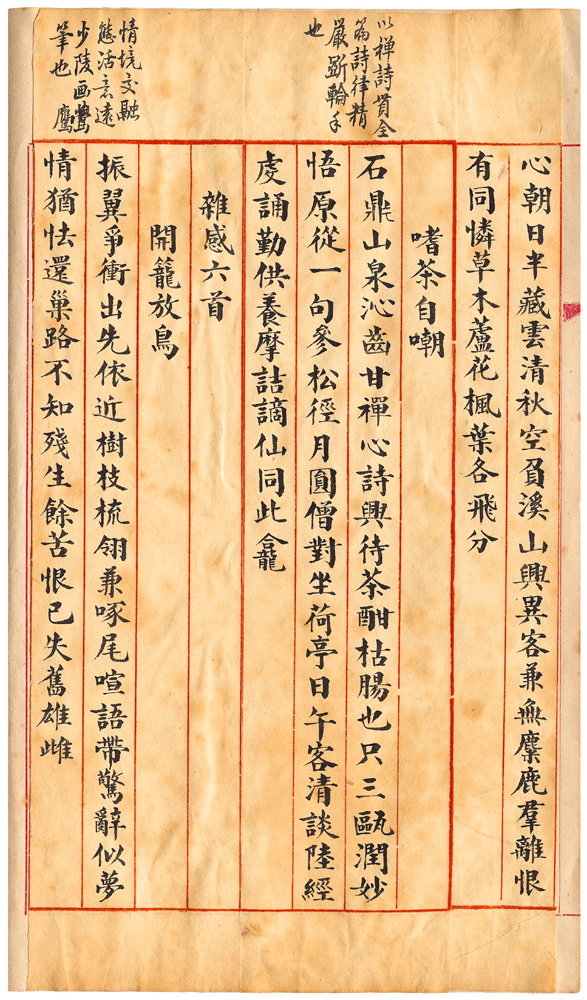 以禅詩貫全
篇詩律精
嚴斲輪手
也
情境交融
態活意遠
少陵画鷙
筆也 鷹
心朝日半藏雲清秋空負溪山興異客兼無麋鹿羣離恨
有同憐草木蘆花楓葉各飛分
嗜茶自嘲
石鼎山泉沁齒甘禪心詩興待茶酣枯腸也只三甌潤妙
悟原從一句參松徑月圓僧對坐荷亭日午客清談陸經
虔誦勤供養摩詰謫仙同此龕
雜感六首
開籠放鳥
振翼爭衝出先依近樹枝梳翎兼啄尾喧語帶驚辭似夢
情猶怯還巢路不知殘生餘苦恨已失舊雄雌